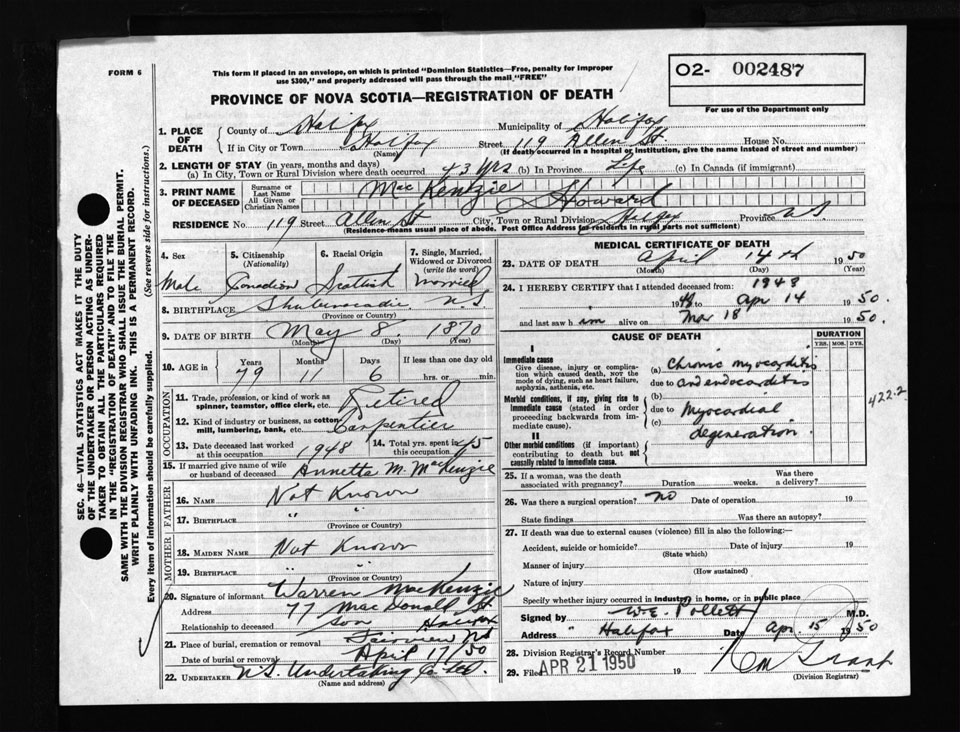 FORM 6
This form if placed in an envelope, on which is printed "Dominion Statistics—Free, penalty for improper
use $300," and properly addressed will pass through the mail "FREE"
O2- 002487
For use of the Department only
PROVINCE OF NOVA SCOTIA—REGISTRATION OF DEATH
1. PLACE OF DEATH
County of Halifax Municipality of Halifax
If in City or Town Halifax Street 119 Allen St House No.
(Name) (If death occurred in a hospital or institution, give the name instead of street and number)
2. LENGTH OF STAY (in years, months and days)
(a) In City, Town or Rural Division where death occurred 43 yrs (b) In Province Life (c) In Canada (if immigrant)
3. PRINT NAME OF DECEASED
Surname or Last Name MacKenzie
All Given or Christian Names Howard
RESIDENCE No. 119 Street Allen St City, Town or Rural Division Halifax Province N.S.
(Residence means usual place of abode. Post Office Address for residents in rural parts not sufficient)
4. Sex
Male
5. Citizenship
(Nationality)
Canadian
6. Racial Origin
Scottish
7. Single, Married,
Widowed or Divorced
(write the word)
Married
8. BIRTHPLACE Shubenacadie N.S
(Province or Country)
9. DATE OF BIRTH May 8. 1870
(Month) (Day) (Year)
10. AGE in
Years Months Days If less than one day old
79 11 6 hrs. or min.
OCCUPATION
11. Trade, profession, or kind of work as
spinner, teamster, office clerk, etc. Retired
12. Kind of industry or business, as cotton
mill, lumbering, bank, etc. Carpentier
13. Date deceased last worked
at this occupation 1948
14. Total yrs. spent in
this occupation 45
15. If married give name of wife
or husband of deceased Annetta M. MacKenzie
FATHER
16. NAME Not Known
17. BIRTHPLACE " "
(Province or Country)
MOTHER
18. MAIDEN NAME Not Known
19. BIRTHPLACE " "
(Province or Country)
20. Signature of informant Warren MacKenzie
Address 77 MacDonald St
Relationship to deceased son Halifax
21. Place of burial, cremation or removal Fairview NS
Date of burial or removal April 17/50
22. UNDERTAKER N.S. Undertaking Co Ltd.
(Name and address)
MEDICAL CERTIFICATE OF DEATH
23. DATE OF DEATH April 14th 1950
(Month) (Day) (Year)
24. I HEREBY CERTIFY that I attended deceased from: 1948
19 48 to Apr 14 1950.
and last saw him alive on Mar 18 1950.
CAUSE OF DEATH
DURATION
YRS. MOS. DYS.
I
Immediate cause
Give disease, injury or complica-
tion which caused death, NOT the
mode of dying, such as heart failure,
asphyxia, asthenia, etc.
(a) Chronic myocarditis
due to and endocarditis
Morbid conditions, if any, giving rise to
immediate cause (stated in order
proceeding backwards from im-
mediate cause).
(b)
due to Myocardial
(c) degeneration.
422-2
II
Other morbid conditions (if important)
contributing to death but not
causally related to immediate cause.
25. If a woman, was the death
associated with pregnancy? Duration weeks. Was there
a delivery?
26. Was there a surgical operation? no Date of operation 19
State findings Was there an autopsy?
27. If death was due to external causes (violence) fill in also the following:—
Accident, suicide or homicide? Date of injury 19
(State which)
Manner of injury
(How sustained)
Nature of injury
Specify whether injury occurred in industry, in home, or in public place
Signed by W.E. Pollett M.D.
Address " Halifax Date Apr. 15 1950
28. Division Registrar's Record Number
29. Filed APR 21 1950 19
Grant
(Division Registrar)
SEC. 46—VITAL STATISTICS ACT MAKES IT THE DUTY
OF THE UNDERTAKER OR PERSON ACTING AS UNDER-
TAKER TO OBTAIN ALL THE PARTICULARS REQUIRED
IN THE "REGISTRATION OF DEATH" AND TO FILE THE
SAME WITH THE DIVISION REGISTRAR WHO SHALL ISSUE THE BURIAL PERMIT.
WRITE PLAINLY WITH UNFADING INK. THIS IS A PERMANENT RECORD.
Every item of information should be carefully supplied. (See reverse side for instructions.)